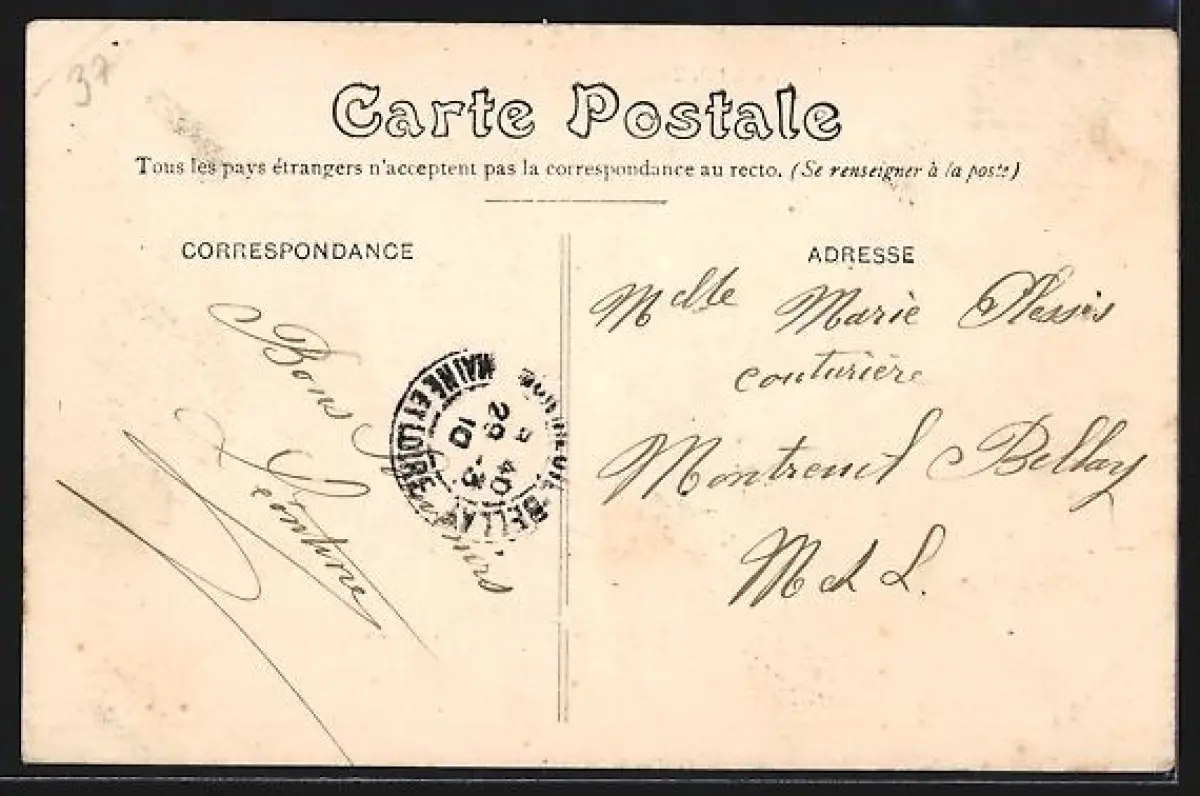 37
Carte Postale
Tous les pays étrangers n'acceptent pas la correspondance au recto. (Se renseigner à la poste)
CORRESPONDANCE
Bons
Léontine
MONTREUIL-BELLAY
MAINE ET LOIRE
29 - 3
10
ADRESSE
Mdlle Marie Plessis
couturière
Montreuil Bellay
M et L.